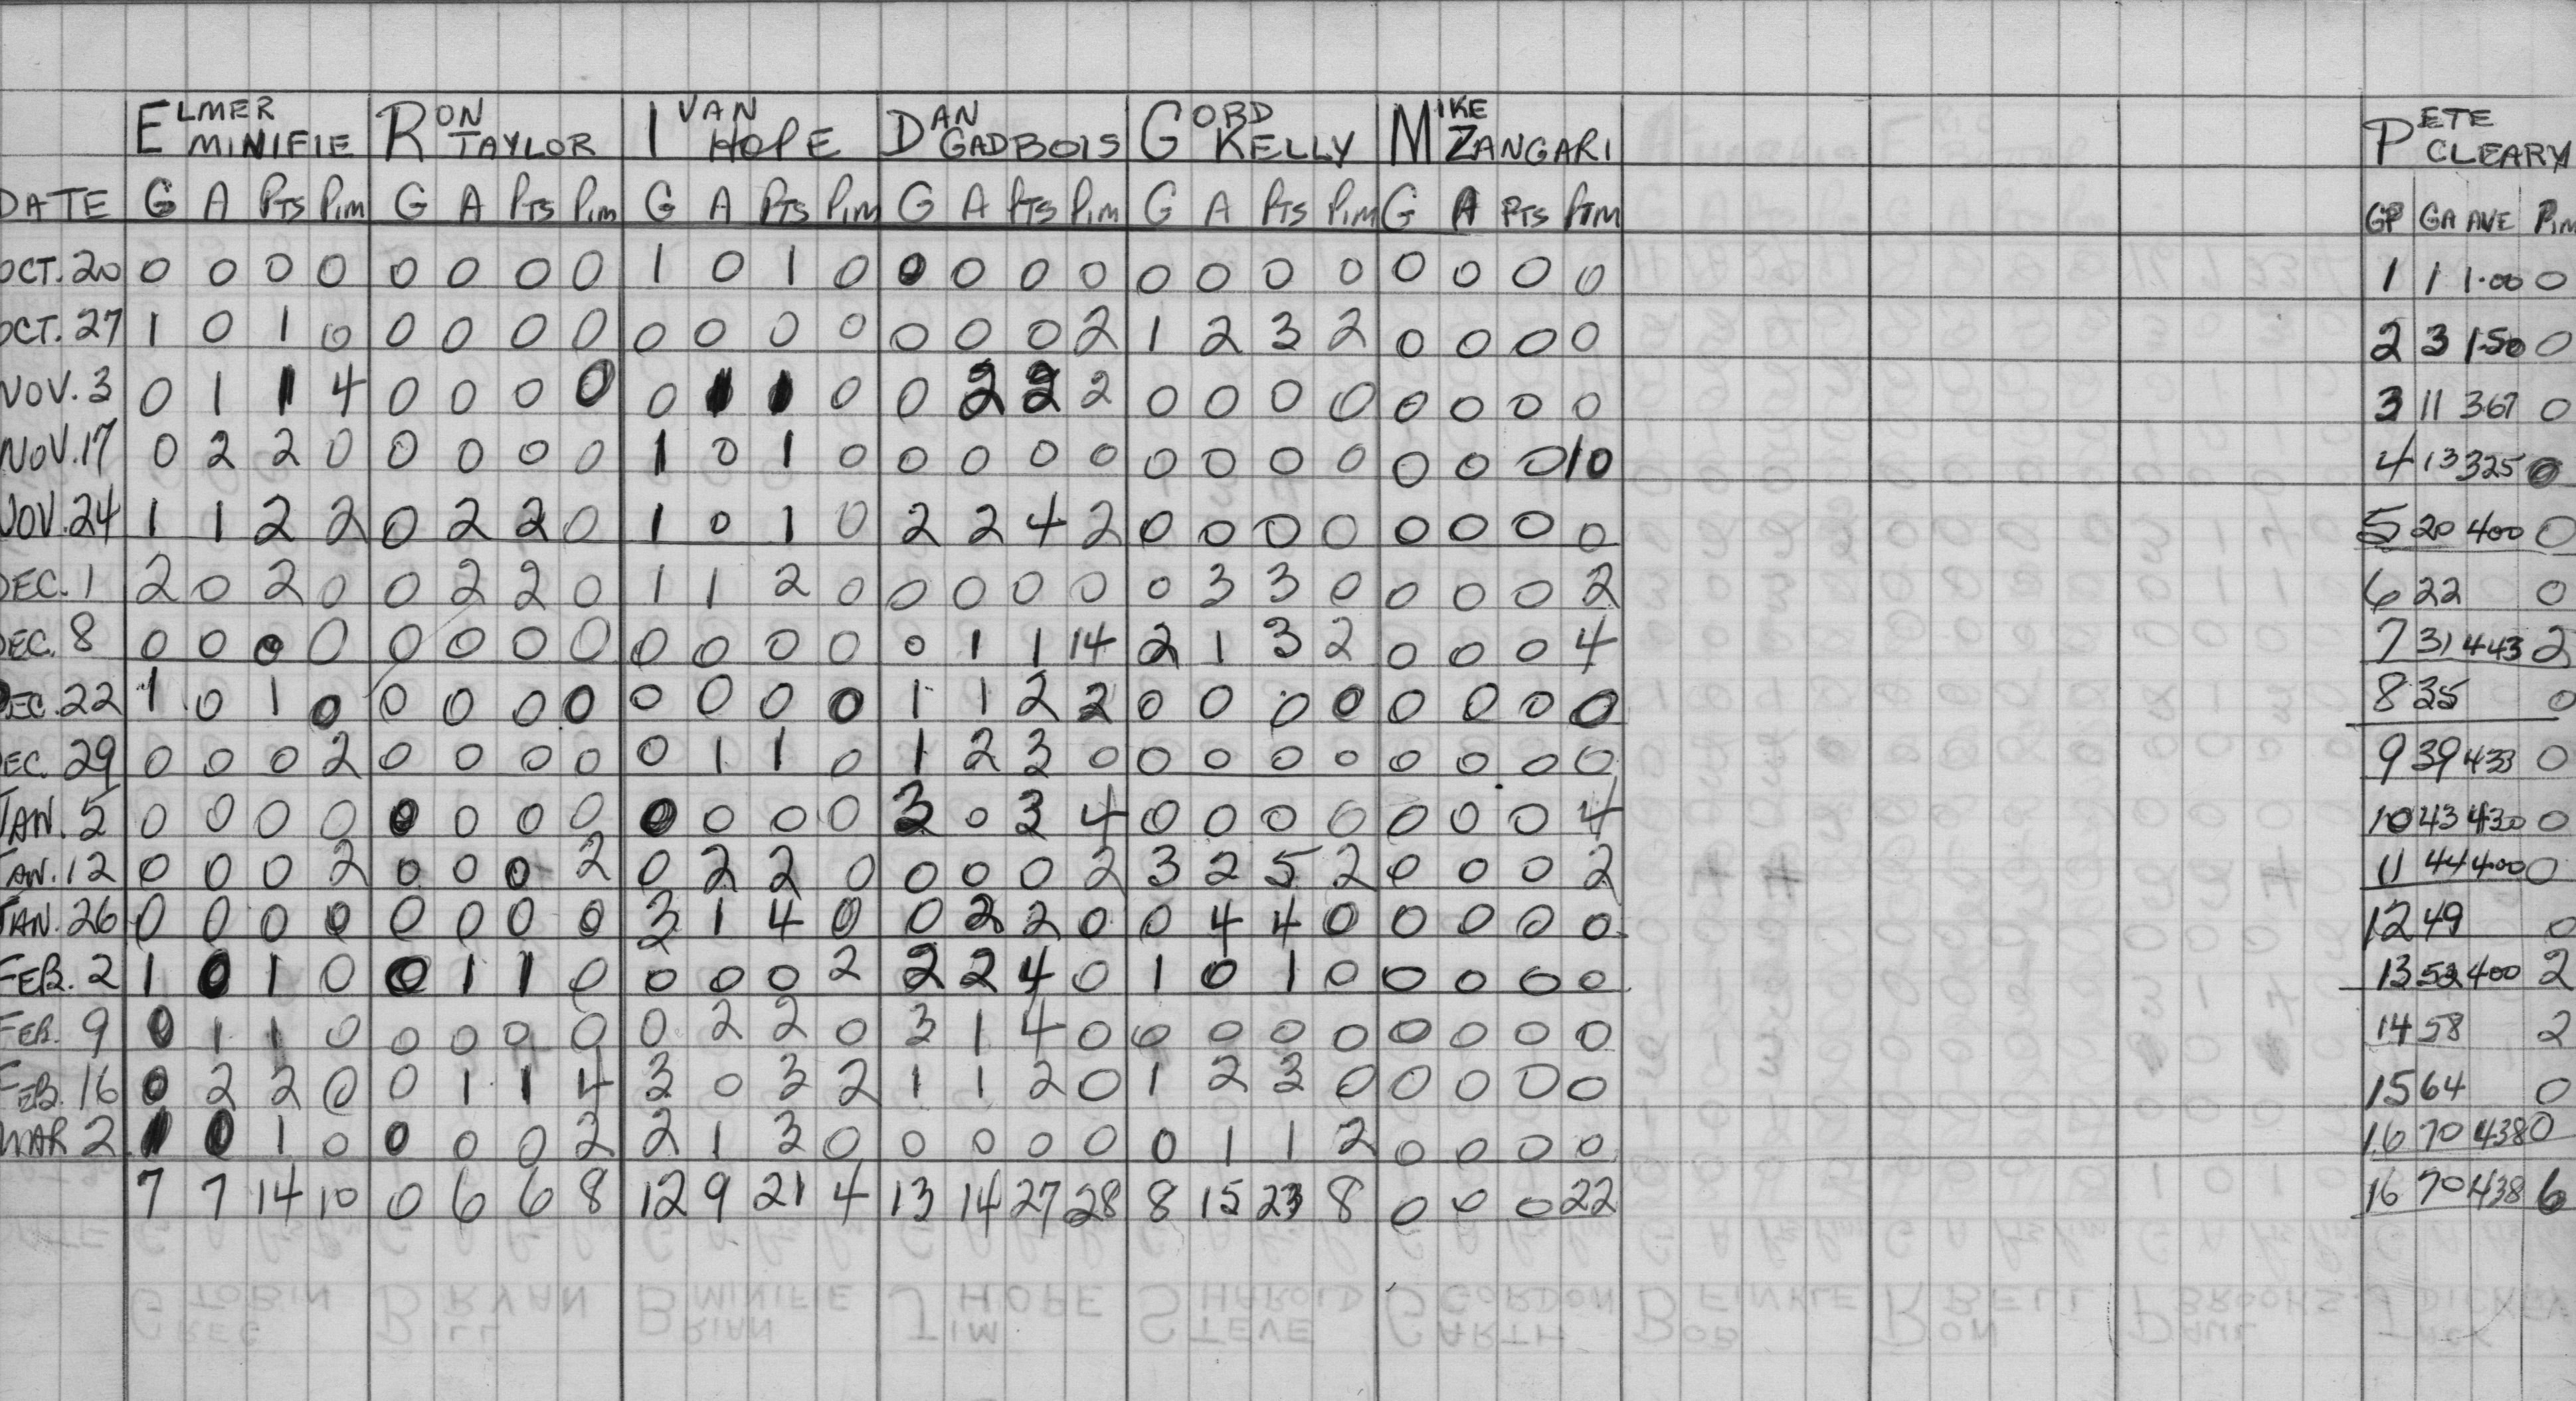 ELMER MINIFIE RON TAYLOR IVAN HOPE DAN GADBOIS GORD KELLY MIKE ZANGARI PETE CLEARY
DATE G A PTS PIM G A PTS PIM G A PTS PIM G A PTS PIM G A PTS PIM G A PTS PIM GP GA AVE PIM
OCT. 20 0 0 0 0 0 0 0 0 1 0 1 0 0 0 0 0 0 0 0 0 0 0 0 0 1 1 1.00 0
OCT. 27 1 0 1 0 0 0 0 0 0 0 0 0 0 0 0 2 1 2 3 2 0 0 0 0 2 3 1.50 0
NOV. 3 0 1 1 4 0 0 0 0 0 1 1 0 0 2 2 2 0 0 0 0 0 0 0 0 3 11 367 0
NOV. 17 0 2 2 0 0 0 0 0 1 0 1 0 0 0 0 0 0 0 0 0 0 0 0 10 4 13 325 0
NOV. 24 1 1 2 2 0 2 2 0 1 0 1 0 2 2 4 2 0 0 0 0 0 0 0 0 5 20 400 0
DEC. 1 2 0 2 0 0 2 2 0 1 1 2 0 0 0 0 0 0 3 3 0 0 0 0 2 6 22 0
DEC. 8 0 0 0 0 0 0 0 0 0 0 0 0 0 1 1 14 2 1 3 2 0 0 0 4 7 31 443 2
DEC. 22 1 0 1 0 0 0 0 0 0 0 0 0 1 1 2 2 0 0 0 0 0 0 0 0 8 35 0
DEC. 29 0 0 0 2 0 0 0 0 0 1 1 0 1 2 3 0 0 0 0 0 0 0 0 0 9 39 433 0
JAN. 5 0 0 0 0 0 0 0 0 0 0 0 0 3 0 3 4 0 0 0 0 0 0 0 4 10 43 430 0
JAN. 12 0 0 0 2 0 0 0 2 0 2 2 0 0 0 0 2 3 2 5 2 0 0 0 2 11 44 400 0
JAN. 26 0 0 0 0 0 0 0 0 3 1 4 0 0 2 2 0 0 4 4 0 0 0 0 0 12 49 0
FEB. 2 1 0 1 0 0 1 1 0 0 0 0 2 2 2 4 0 1 0 1 0 0 0 0 0 13 52 400 2
FEB. 9 0 1 1 0 0 0 0 0 0 2 2 0 3 1 4 0 0 0 0 0 0 0 0 0 14 58 2
FEB. 16 0 2 2 0 0 1 1 4 3 0 3 2 1 1 2 0 1 2 3 0 0 0 0 0 15 64 0
MAR 2 1 0 1 0 0 0 0 2 2 1 3 0 0 0 0 0 0 1 1 2 0 0 0 0 16 70 438 0
7 7 14 10 0 6 6 8 12 9 21 4 13 14 27 28 8 15 23 8 0 0 0 22 16 70 438 6